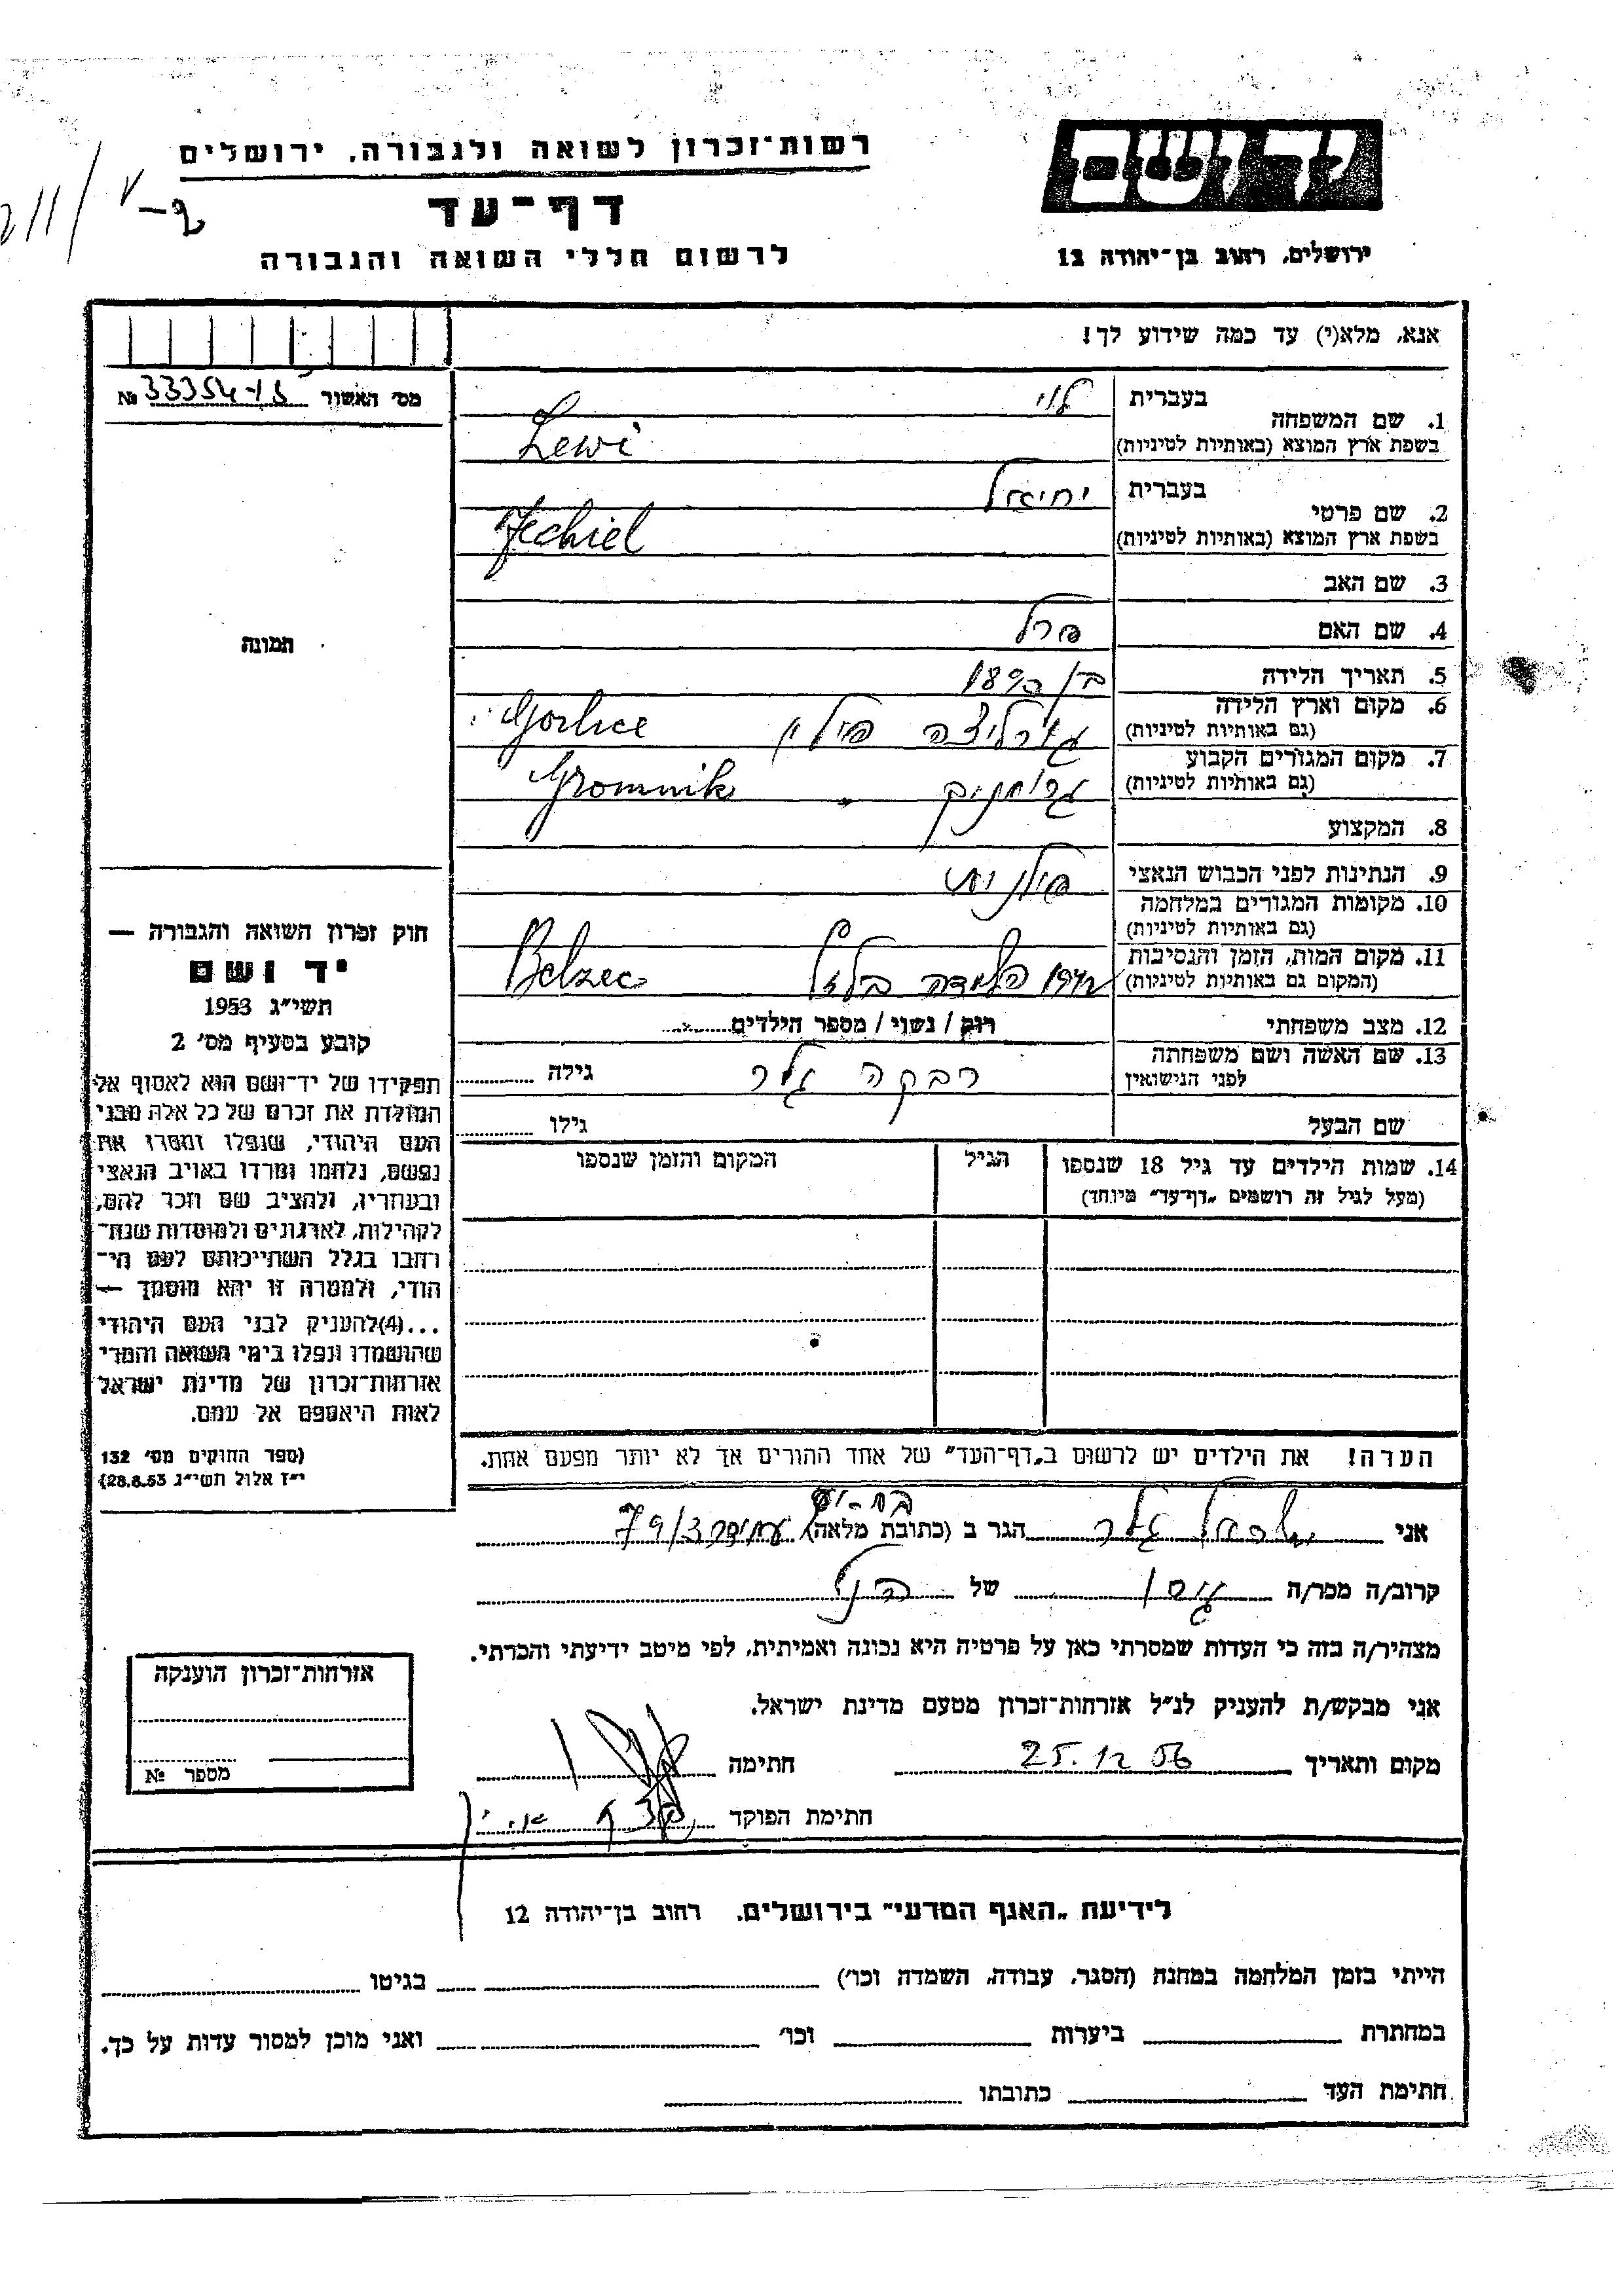 יד ושם
רשות־זכרון לשואה ולגבורה, ירושלים
דף־עד
לרשום חללי השואה והגבורה
ירושלים, רחוב בן־יהודה 12
אנא, מלא(י) עד כמה שידוע לך!
מס׳ האשור № 33354-15
תמונה
1. שם המשפחה
בעברית לוי
בשפת ארץ המוצא (באותיות לטיניות) Lewi
2. שם פרטי
בעברית יחיאל
בשפת ארץ המוצא (באותיות לטיניות) Jechiel
3. שם האב
4. שם האם פרל
5. תאריך הלידה
6. מקום וארץ הלידה גורליצה פולין Gorlice
(גם באותיות לטיניות)
7. מקום המגורים הקבוע גרומניק Gromnik
(גם באותיות לטיניות)
8. המקצוע
9. הנתינות לפני הכבוש הנאצי פולנית
10. מקומות המגורים במלחמה
(גם באותיות לטיניות)
11. מקום המות, הזמן והנסיבות 1942 בלזץ Belzec
(המקום גם באותיות לטיניות)
12. מצב משפחתי רוק / נשוי / מספר הילדים
13. שם האשה ושם משפחתה רבקה גלר גילה
לפני הנישואין
שם הבעל גילו
14. שמות הילדים עד גיל 18 שנספו הגיל המקום והזמן שנספו
(מעל לגיל זה רושמים „דף־עד״ מיוחד)
חוק זכרון השואה והגבורה —
יד ושם
תשי״ג 1953
קובע בסעיף מס׳ 2
תפקידו של יד־ושם הוא לאסוף אל
המולדת את זכרם של כל אלה מבני
העם היהודי, שנפלו ומסרו את
נפשם, נלחמו ומרדו באויב הנאצי
ובעוזריו, ולהציב שם וזכר להם,
לקהילות, לארגונים ולמוסדות שנח־
רבו בגלל השתייכותם לעם הי־
הודי, ולמטרה זו יהא מוסמך —
...(4)להעניק לבני העם היהודי
שהושמדו ונפלו בימי השואה והמרי
אזרחות־זכרון של מדינת ישראל
לאות היאספם אל עמם.
(ספר החוקים מס׳ 132
י״ז אלול תשי״ג 28.8.53)
הערה! את הילדים יש לרשום ב„דף־העד״ של אחד ההורים אך לא יותר מפעם אחת.
אני גלר הגר ב (כתובת מלאה) 79/3
קרוב/ה מכר/ה גיסו של הנ״ל
מצהיר/ה בזה כי העדות שמסרתי כאן על פרטיה היא נכונה ואמיתית, לפי מיטב ידיעתי והכרתי.
אני מבקש/ת להעניק לנ״ל אזרחות־זכרון מטעם מדינת ישראל.
מקום ותאריך 25.12.56 חתימה
חתימת הפוקד
אזרחות־זכרון הוענקה
מספר №
לידיעת „האגף המדעי״ בירושלים, רחוב בן־יהודה 12
הייתי בזמן המלחמה במחנה (הסגר, עבודה, השמדה וכו׳) בגיטו
במחתרת ביערות וכו׳ ואני מוכן למסור עדות על כך.
חתימת העד כתובתו